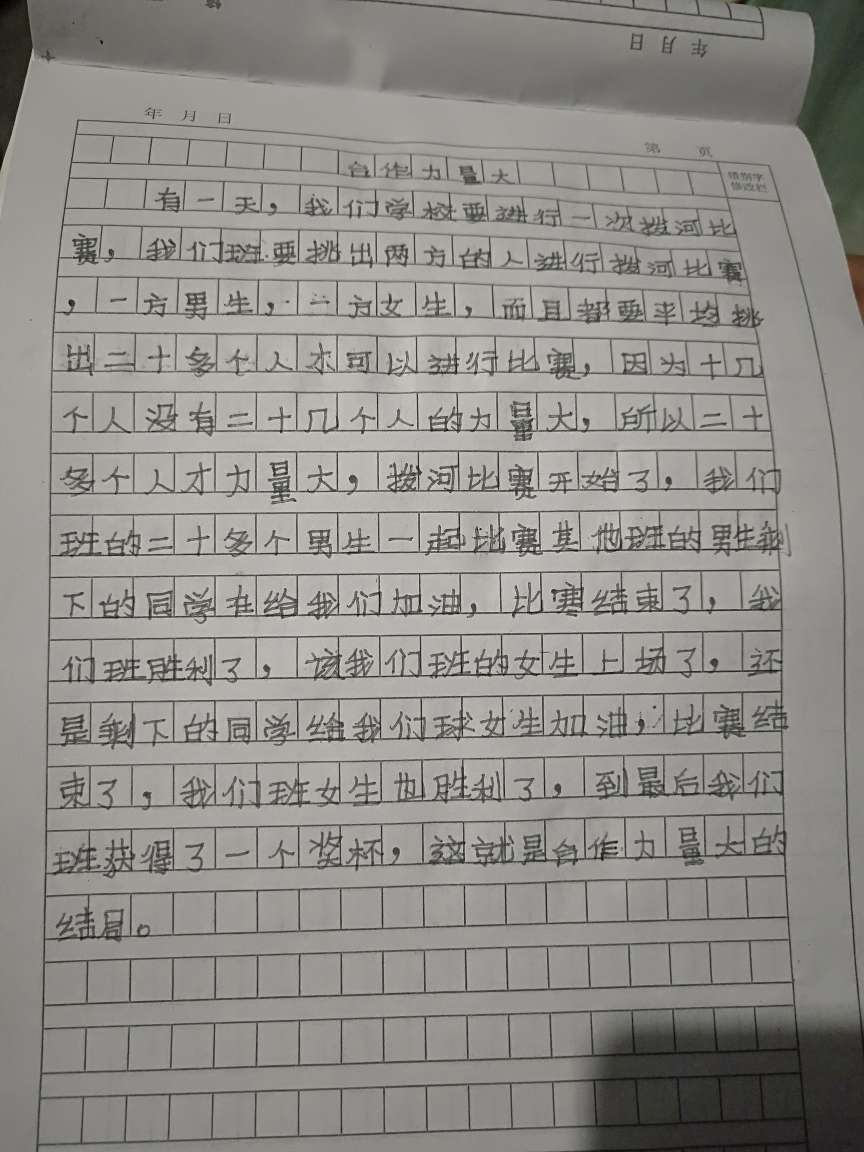 年 月 日
年 月 日
第 页
错别字
修改栏
合作力量大
有一天，我们学校要进行一次拨河比
赛，我们班要挑出两方的人进行拨河比赛
，一方男生，一方女生，而且都要平均挑
出二十多个人才可以进行比赛，因为十几
个人没有二十几个人的力量大，所以二十
多个人才力量大，拨河比赛开始了，我们
班的二十多个男生一起比赛其他班的男生剩
下的同学在给我们加油，比赛结束了，我
们班胜利了，该我们班的女生上场了，还
是剩下的同学给我们球女生加油，比赛结
束了，我们班女生也胜利了，到最后我们
班获得了一个奖杯，这就是合作力量大的
结局。